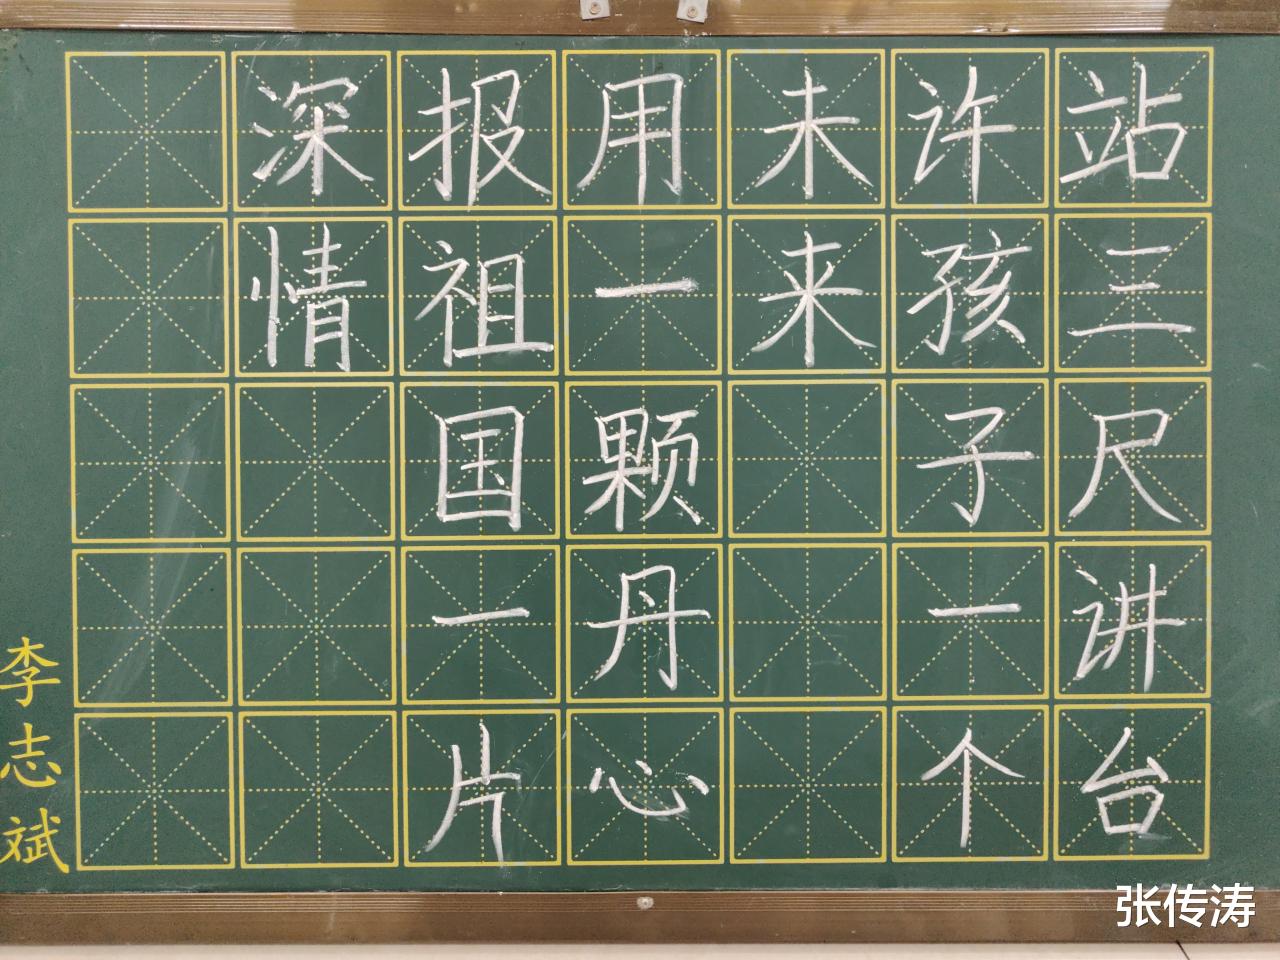 站三尺讲台
许孩子一个
未来
用一颗丹心
报祖国一片
深情
李志斌
张传涛